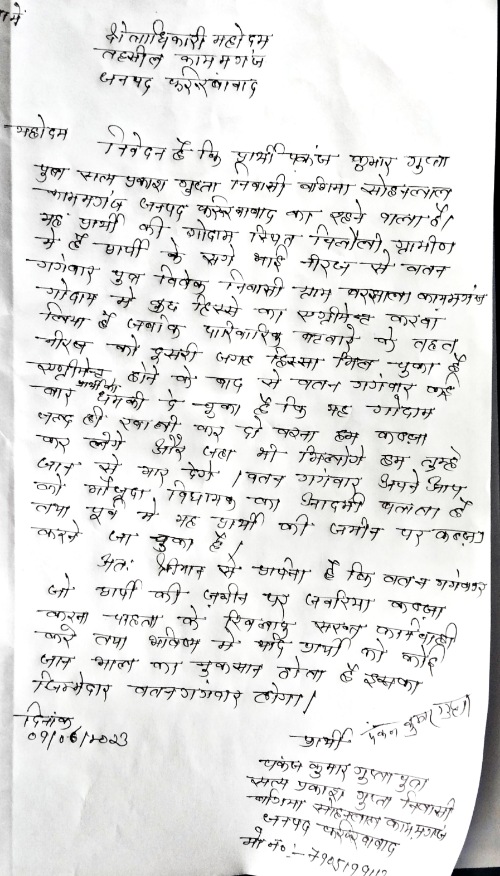 में
क्षेत्राधिकारी महोदय
तहसील कायमगंज
जनपद फर्रुखाबाद
महोदय
निवेदन है कि प्रार्थी पंकज कुमार गुप्ता
पुत्र सत्य प्रकाश गुप्ता निवासी बगिया सोहनलाल
कायमगंज जनपद फर्रुखाबाद का रहने वाला है।
यह प्रार्थी की गोदाम स्थित चिलौली ग्रामीण
में है प्रार्थी के सगे भाई नीरज से वतन
गंगवार पुत्र विवेक निवासी ग्राम बरझाला कायमगंज
गोदाम में कुछ हिस्से का एग्रीमेण्ट करवा
लिया है जबकि पारिवारिक बटवारे के तहत
नीरज को दूसरी जगह हिस्सा मिल चुका है
एग्रीमेण्ट होने के बाद से वतन गंगवार कई
बार प्रार्थी को धमकी दे चुका है कि यह गोदाम
जल्द ही खाली कर दो वरना हम कब्जा
कर लेंगे और जहा भी मिलोगे हम तुम्हे
जान से मार देंगे। वतन गंगवार अपने आप
को मौजूदा विधायक का आदमी बताता है
तथा पूर्व में यह प्रार्थी की जमीन पर कब्जा
करने जा चुका है।
अतः श्रीमान से प्रार्थना है कि वतन गंगवार
जो प्रार्थी की ज़मीन पर जबरिया कब्ज़ा
करना चाहता के खिलाफ सख्त कार्यवाही
करे तथा भविष्य में यदि प्रार्थी को कोई
जान माल का नुकसान होता है इसका
जिम्मेदार वतन गंगवार होगा।
दिनांक
09/06/2023
प्रार्थी पंकज कुमार गुप्ता
पंकज कुमार गुप्ता पुत्र
सत्य प्रकाश गुप्ता निवासी
बगिया सोहनलाल कायमगंज
जनपद फर्रुखाबाद
मो नं०:-